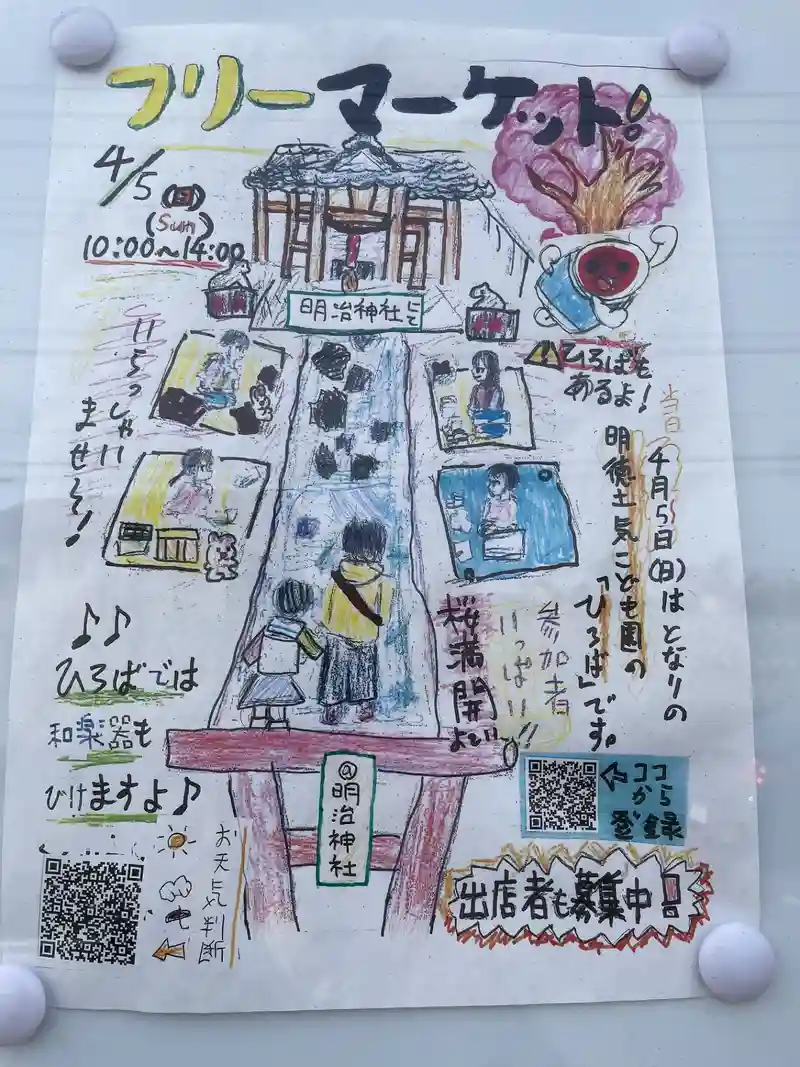 フリーマーケット!
4/5(日)
(Sun)
10:00〜14:00
明治神社にて
いらっしゃい
ませ〜!
ひろばも
あるよ!
当日
4月5日(日)はとなりの
明徳土気こども園の
「ひろば」です。
参加者
いっぱい!!
桜満開よい
♪♪
ひろばでは
和楽器も
ひけますよ♪
@明治神社
ココ
から
登録
お天気判断
出店者も募集中!